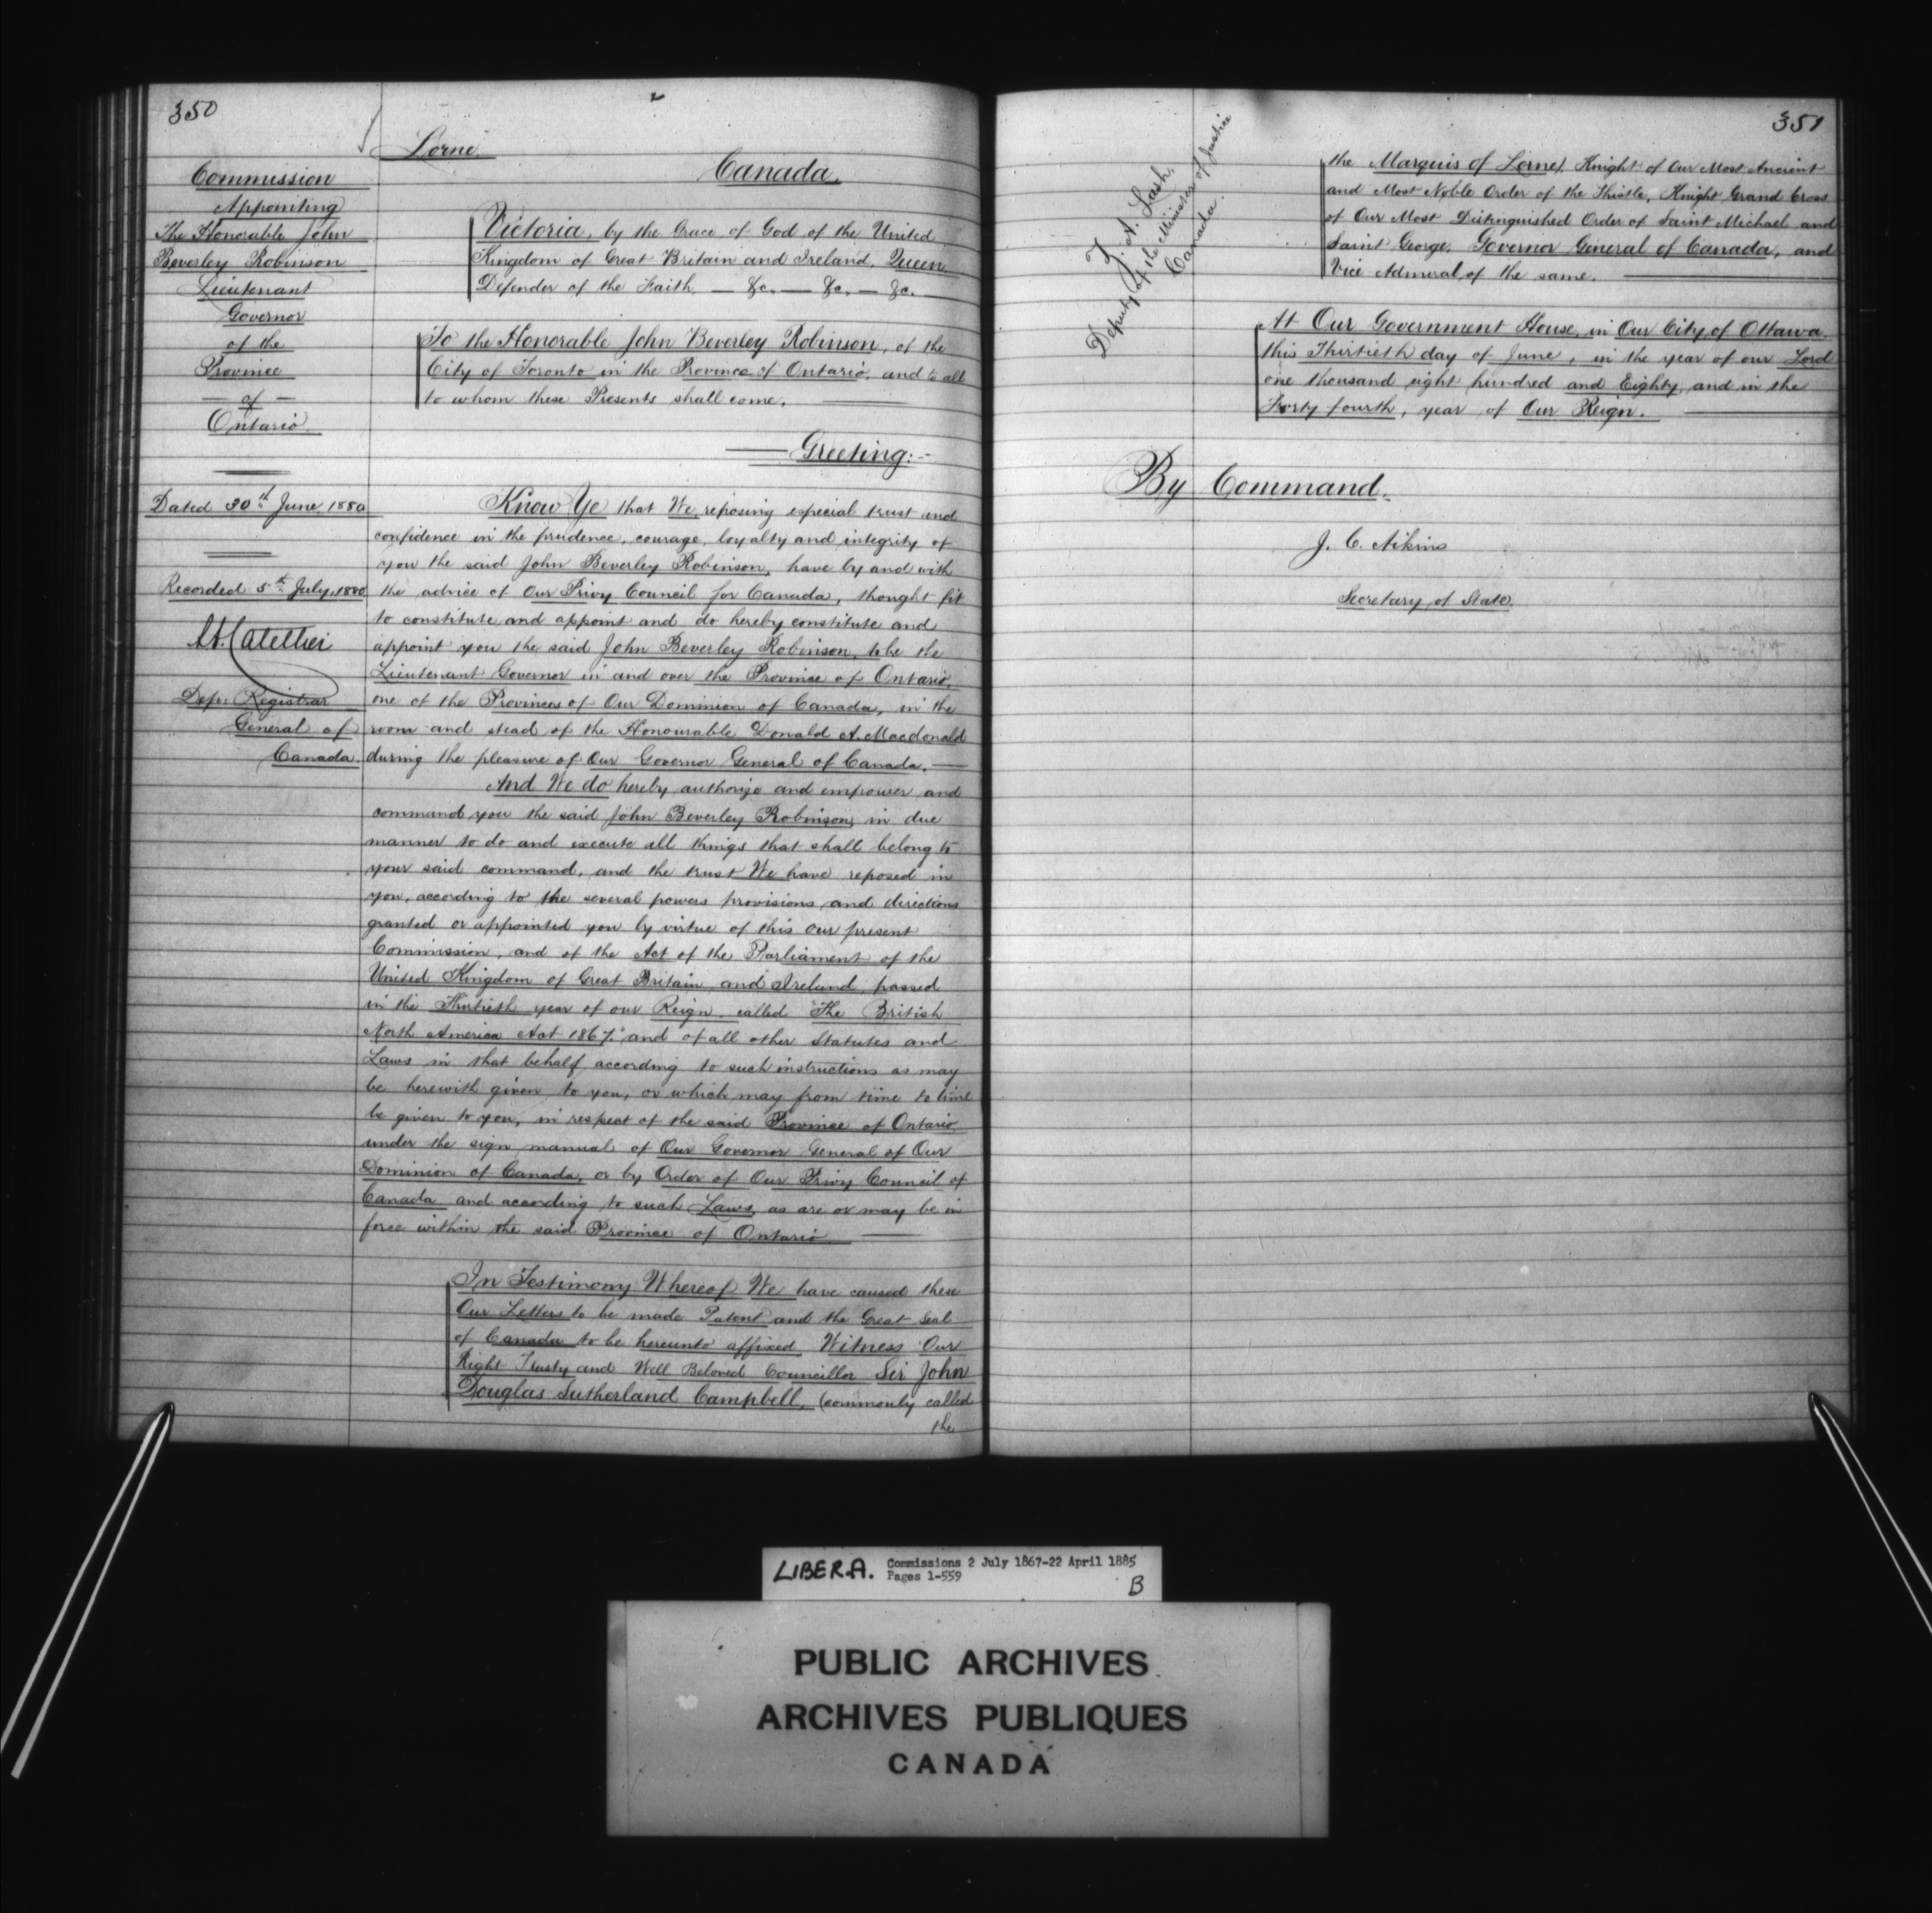 350
Lorne.
Canada.
Commission
Appointing
The Honorable John
Beverley Robinson
Lieutenant
Governor
of the
Province
— of —
Ontario.
Dated 30th June, 1880
Recorded 5th July, 1880
Dep: Registrar
General of
Canada.
Victoria, by the Grace of God of the United
Kingdom of Great Britain and Ireland, Queen
Defender of the Faith, — &c. — &c. — &c.
To the Honorable John Beverley Robinson, of the
City of Toronto in the Province of Ontario, and to all
to whom these Presents shall come.
Greeting:-
Know Ye that We, reposing especial trust and
confidence in the prudence, courage, loyalty and integrity of
you the said John Beverley Robinson, have by and with
the advice of Our Privy Council for Canada, thought fit
to constitute and appoint and do hereby constitute and
appoint you the said John Beverley Robinson, to be the
Lieutenant Governor in and over the Province of Ontario,
one of the Provinces of Our Dominion of Canada, in the
room and stead of the Honourable Donald A. Macdonald
during the pleasure of Our Governor General of Canada. —
And We do hereby authorize and empower and
command you the said John Beverley Robinson, in due
manner to do and execute all things that shall belong to
your said command, and the trust We have reposed in
you, according to the several powers provisions and directions
granted or appointed you by virtue of this our present
Commission, and of the Act of the Parliament of the
United Kingdom of Great Britain and Ireland, passed
in the Thirtieth year of our Reign, called "The British
North America Act 1867," and of all other Statutes and
Laws in that behalf, according to such instructions as may
be herewith given to you, or which may from time to time
be given to you, in respect of the said Province of Ontario
under the sign manual of Our Governor General of Our
Dominion of Canada, or by Order of Our Privy Council of
Canada and according to such Laws, as are or may be in
force within the said Province of Ontario. —
In Testimony Whereof We have caused these
Our Letters to be made Patent and the Great Seal
of Canada to be hereunto affixed, Witness Our
Right Trusty and Well Beloved Councillor Sir John
Douglas Sutherland Campbell, (commonly called
the
351
Z. A. Lash,
Deputy of the Minister of Justice
Canada.
the Marquis of Lorne), Knight of Our Most Ancient
and Most Noble Order of the Thistle, Knight Grand Cross
of Our Most Distinguished Order of Saint Michael and
Saint George, Governor General of Canada, and
Vice Admiral of the same. —
At Our Government House, in Our City of Ottawa
this Thirtieth day of June, in the year of our Lord
one thousand eight hundred and Eighty, and in the
Forty fourth, year of Our Reign. —
By Command.
J. C. Aikins
Secretary of State.
LIBER.A. Commissions 2 July 1867-22 April 1885
Pages 1-559
B
PUBLIC ARCHIVES
ARCHIVES PUBLIQUES
CANADA